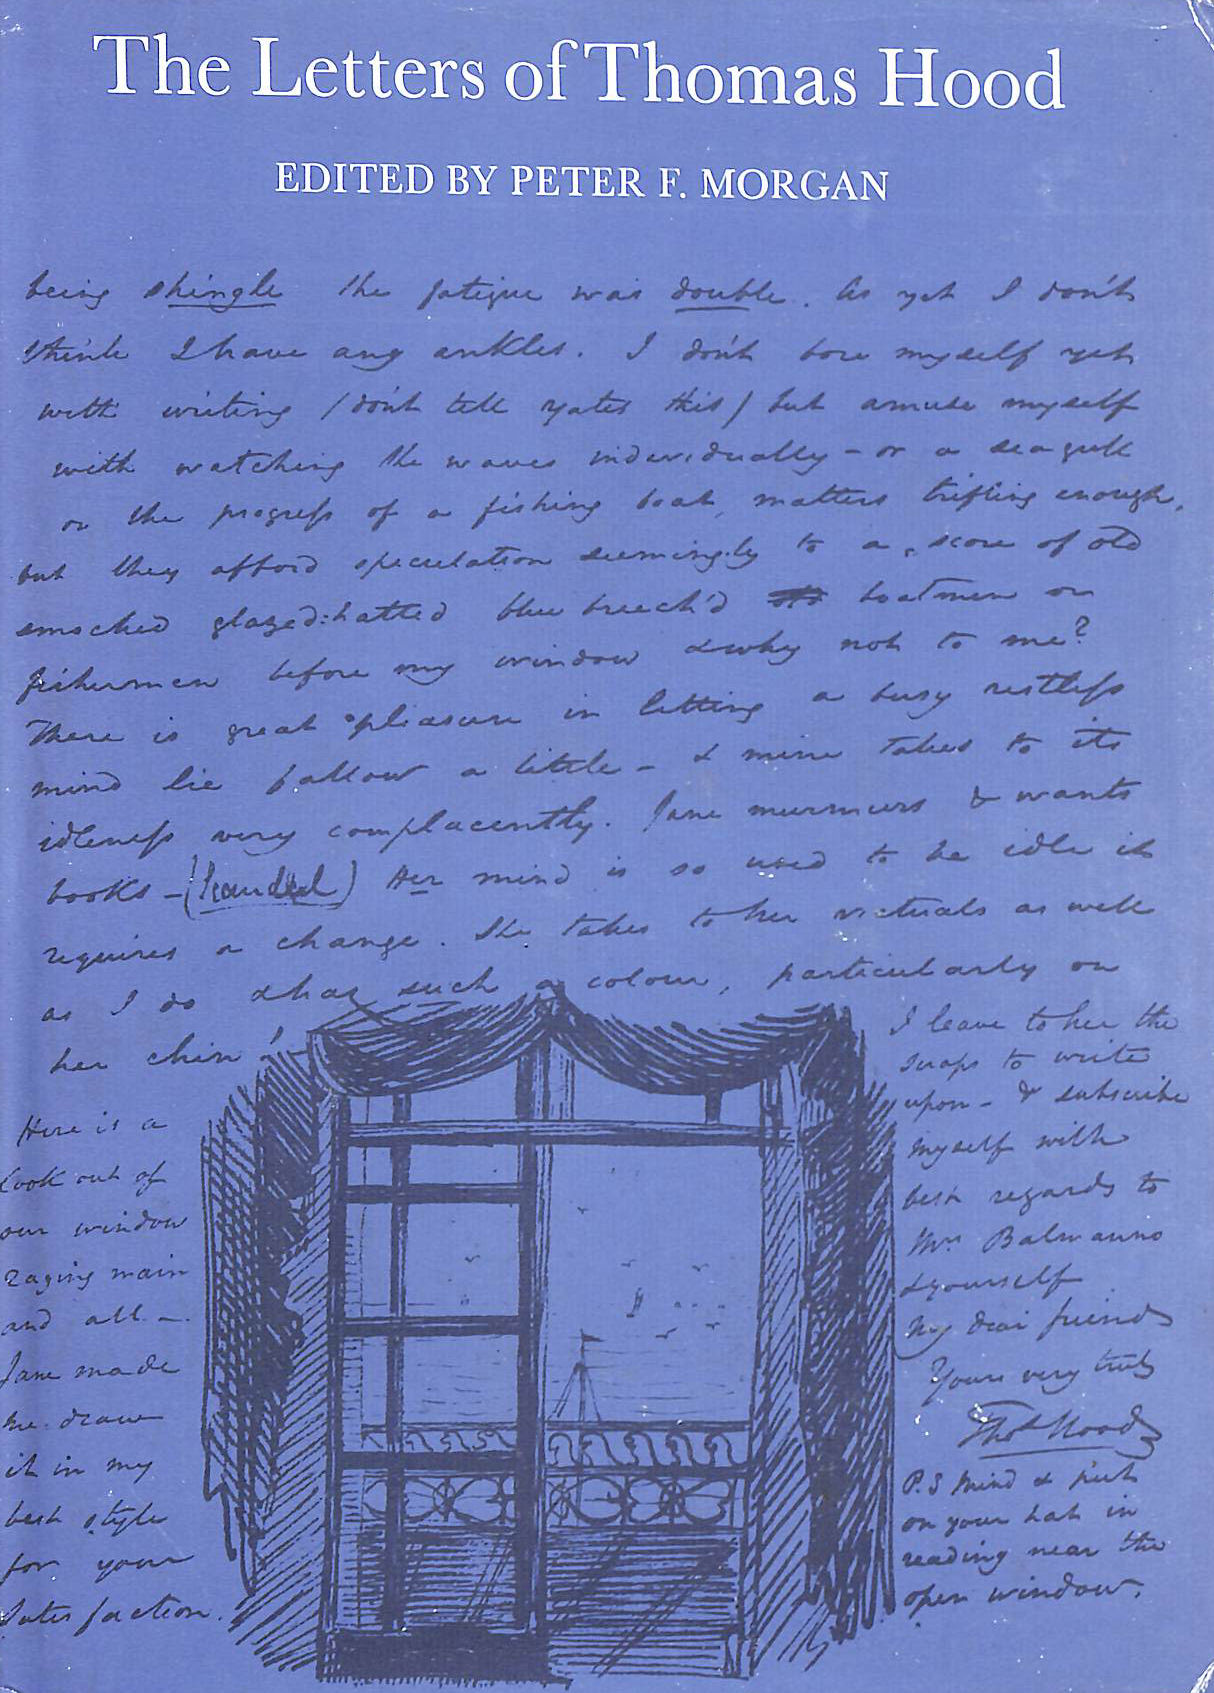 The Letters of Thomas Hood
EDITED BY PETER F. MORGAN
being shingle the fatigue was double. As yet I don't
think I have any ankles. I don't bore myself yet
with writing (don't tell Yates this) but amuse myself
with watching the waves individually – or a seagull
or the progress of a fishing boat, matters trifling enough,
but they afford speculation seemingly to a score of old
smocked glazed-hatted blue breech'd boatmen or
fishermen before my window & why not to me?
There is great pleasure in letting a busy restless
mind lie fallow a little – & mine takes to its
idleness very complacently. Jane murmurs & wants
books – Her mind is so used to be idle it
requires a change. She takes to her victuals as well
as I do & has such a colour, particularly on
her chin!
Here is a
look out of
our window
raging main
and all –
Jane made
me draw
it in my
best style
for your
satisfaction.
I leave to her the
scraps to write
upon – & subscribe
myself with
best regards to
Mrs Balmanno
& yourself
My dear friend
Yours very truly
Thos Hood
P.S Mind & put
on your hat in
reading near the
open window.